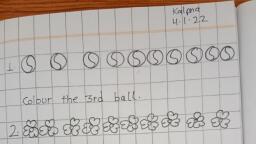 Kalpna
4.1.22
1.
Colour the 3rd ball.
2.